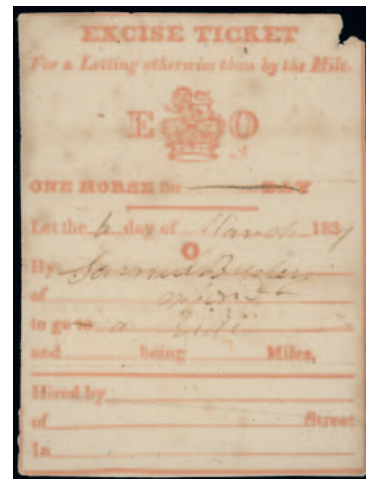 EXCISE TICKET
For a Letting otherwise than by the Mile.
E O
ONE HORSE for DAY
Let the 6 day of March 183
O
By Samuel
of
to go to a
and being Miles,
Hired by
of Street
In